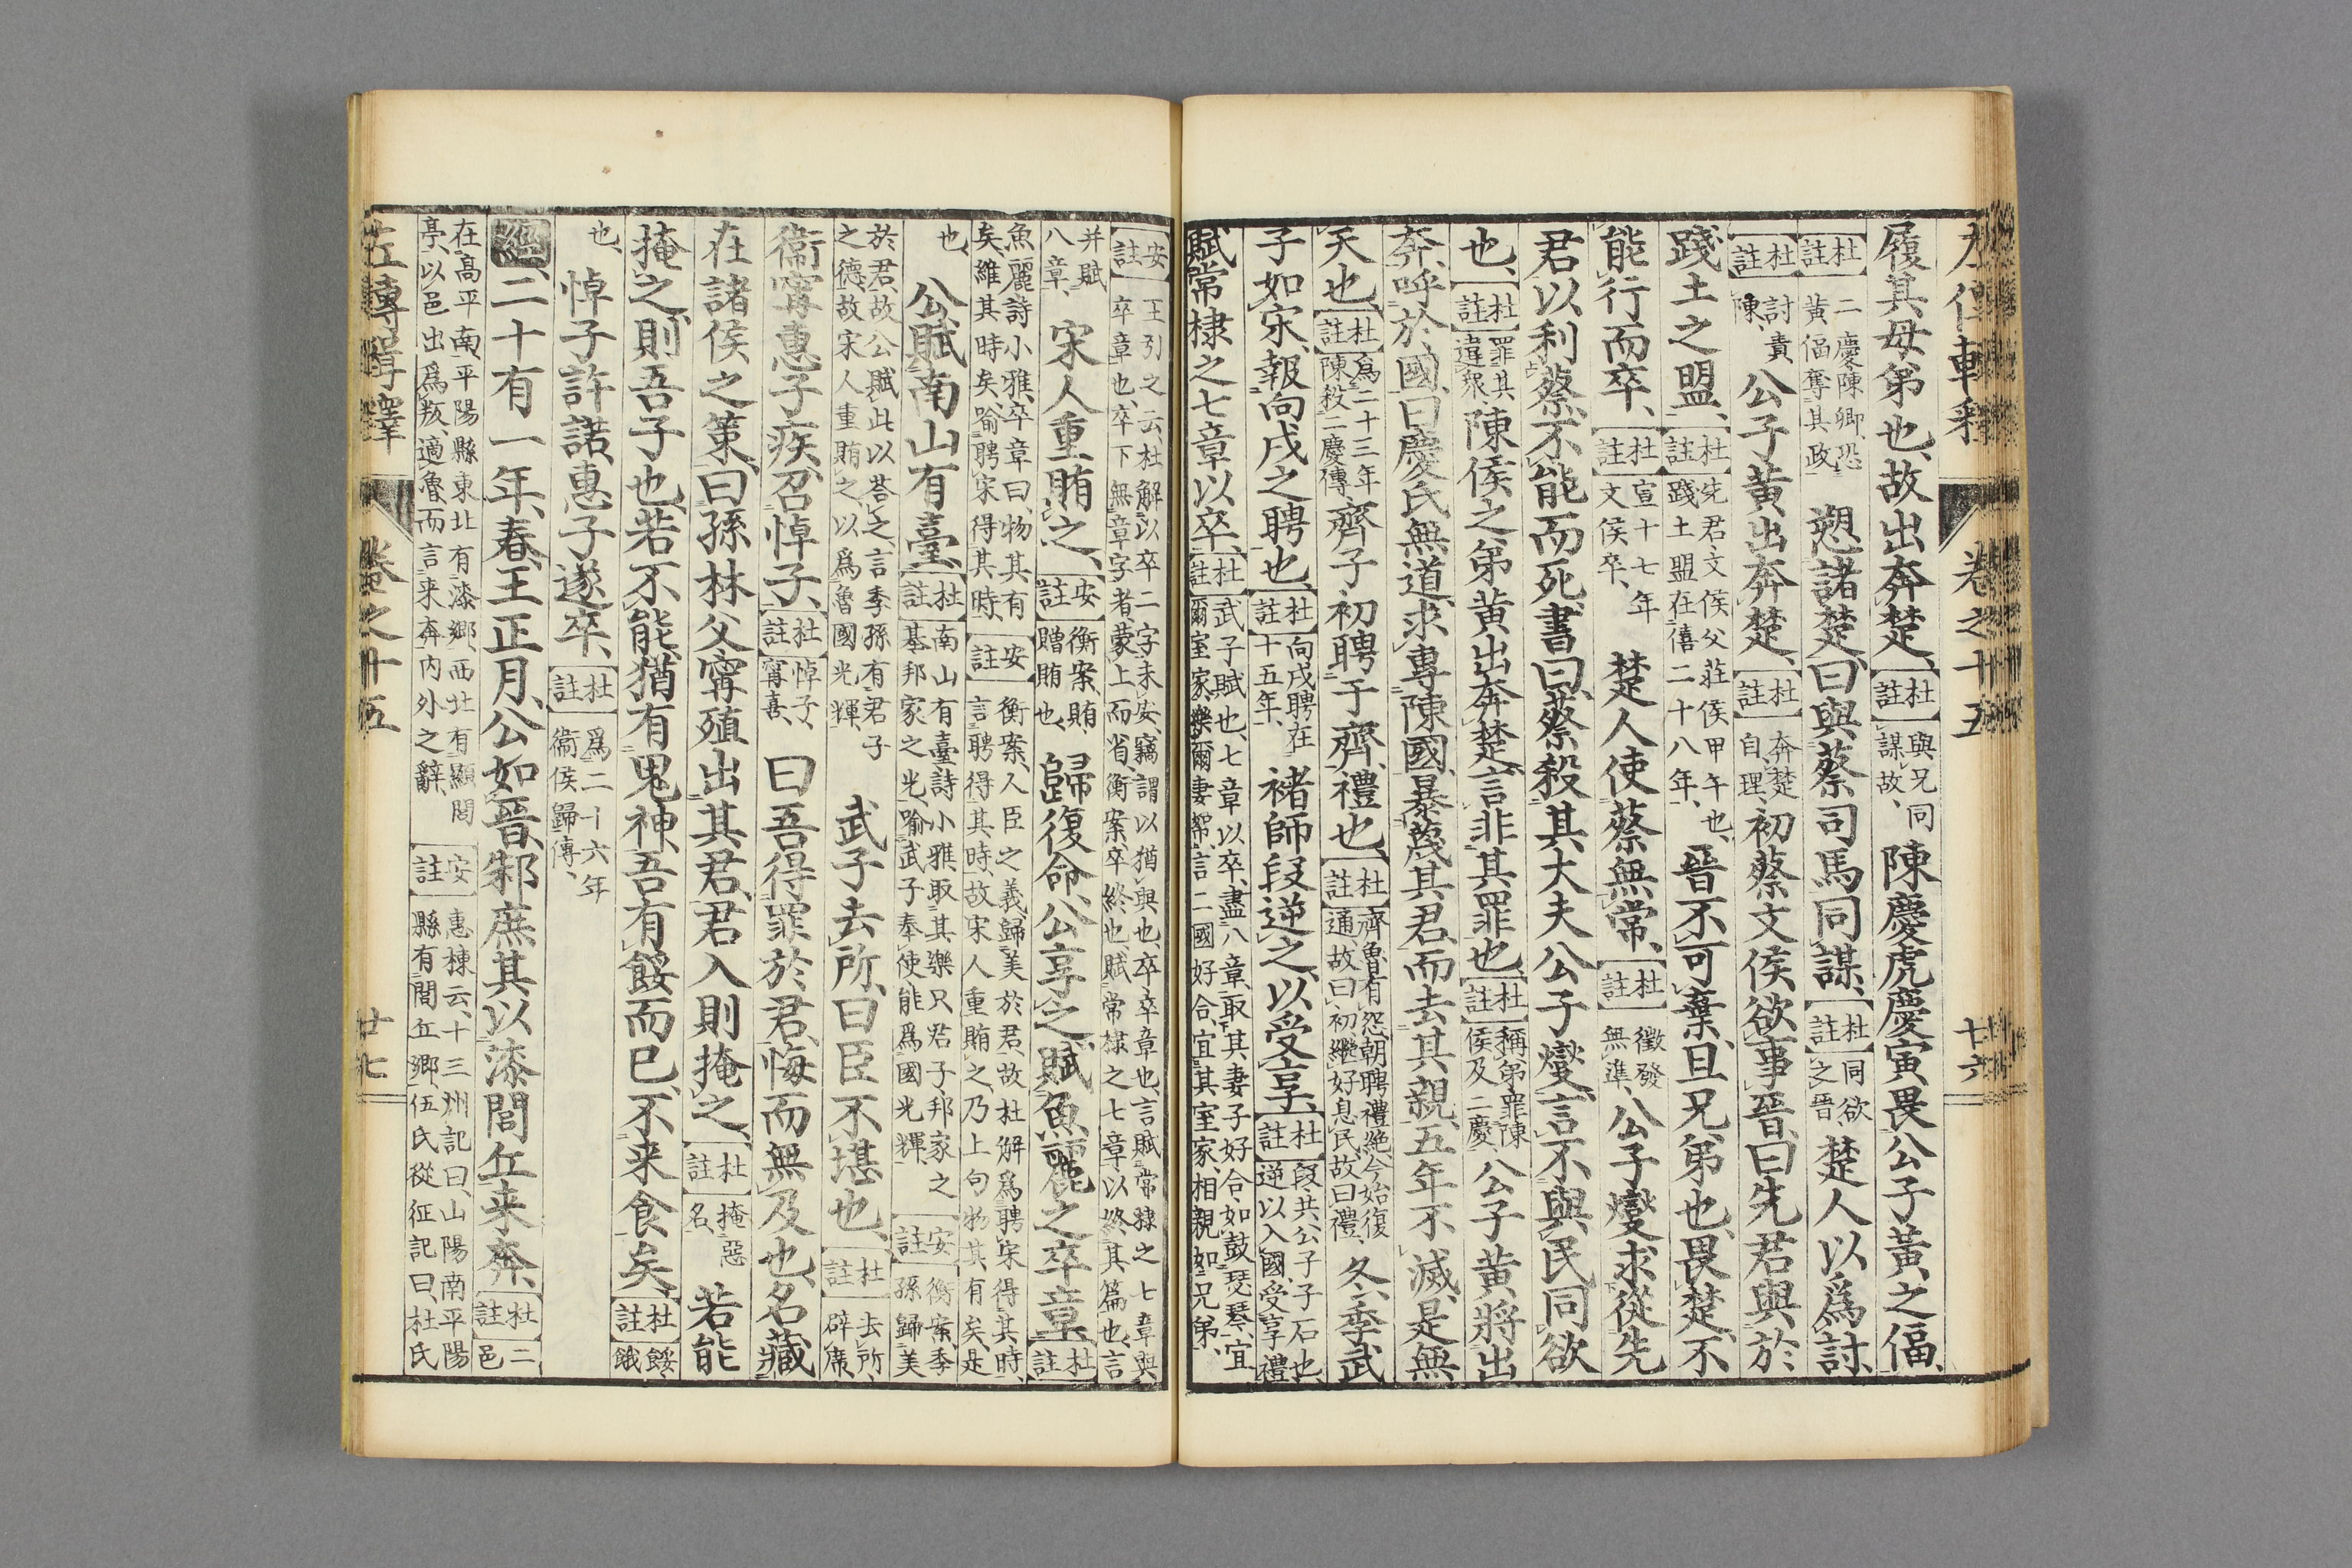 左傳輯釋 卷之十五 十六
履其母弟也、故出奔楚、【杜註】與兄同謀故、陳慶虎慶寅畏公子黃之偪、
【杜註】二慶陳卿、恐黃偪奪其政、愬諸楚、曰與蔡司馬同謀、【杜註】同欲之晉、楚人以爲討、
【杜註】討責陳、公子黃出奔楚、【杜註】奔楚自理、初蔡文侯欲事晉、曰先君與於
踐土之盟、【杜註】先君文侯父莊侯甲午也、踐土盟在僖二十八年、晉不可棄、且兄弟也、畏楚、不
能行而卒、【杜註】宣十七年文侯卒、楚人使蔡無常、【杜註】徵發無準、公子燮求從先
君以利蔡、不能而死、書曰蔡殺其大夫公子燮、言不與民同欲
也、【杜註】罪其違衆、陳侯之弟黃出奔楚、言非其罪也、【杜註】稱弟罪陳侯及二慶、公子黃將出
奔、呼於國、曰慶氏無道、求專陳國、暴蔑其君、而去其親、五年不滅、是無
天也、【杜註】爲二十三年陳殺二慶傳、齊子初聘于齊、禮也、【杜註】齊魯有怨、朝聘禮絶、今始復通、故曰初、繼好息民、故曰禮、冬、季武
子如宋、報向戌之聘也、【杜註】向戌聘在十五年、褚師段逆之、以受享、【杜註】段共公子子石也、逆以入國、受享禮
賦常棣之七章以卒、【杜註】武子賦也、七章以卒、盡八章、取其妻子好合、如鼓瑟琴、宜爾室家、樂爾妻帑、言二國好合、宜其室家、相親如兄弟、
【安註】王引之云、杜解以卒二字未安、竊謂以猶與也、卒卒章也、言賦常棣之七章與卒章也、卒下無章字者、蒙上而省、衡案、卒終也、賦常棣之七章以終其篇也、言
并賦八章、宋人重賄之、【安註】衡案、賄贈賄也、歸復命、公享之、賦魚麗之卒章、【杜註】
魚麗詩小雅、卒章曰、物其有矣、維其時矣、喻聘宋得其時、【安註】衡案、人臣之義、歸美於君、故杜解爲聘宋得其時、言聘得其時、故宋人重賄之、乃上句物其有矣、是
也、公賦南山有臺、【杜註】南山有臺詩小雅、取其樂只君子、邦家之基、邦家之光、喻武子奉使能爲國光輝、【安註】衡案、季孫歸美
於君、故公賦此以荅之、言季孫有君子之德、故宋人重賄之、以爲魯國光輝、武子去所、曰臣不堪也、【杜註】去所、辟席、
衞甯惠子疾、召悼子、【杜註】悼子、甯喜、曰吾得罪於君、悔而無及也、名藏
在諸侯之策、曰孫林父甯殖出其君、君入則掩之、【杜註】掩惡名、若能
掩之、則吾子也、若不能、猶有鬼神、吾有餒而已、不来食矣、【杜註】餒、餓
也、悼子許諾、惠子遂卒、【杜註】爲二十六年衞侯歸傳、
經、二十有一年、春、王正月、公如晉、邾庶其以漆閭丘来奔、【杜註】二邑
在高平南平陽縣東北有漆鄉、西北有顯閭亭、以邑出爲叛、適魯而言来奔、内外之辭、【安註】惠棟云、十三州記曰、山陽南平陽縣有閭丘鄉、伍氏從征記曰、杜氏
左傳輯釋 卷之十五 廿七